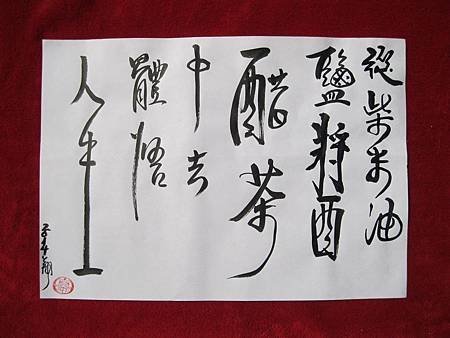 從柴米油
鹽醬
醋茶
中去
體悟
人生